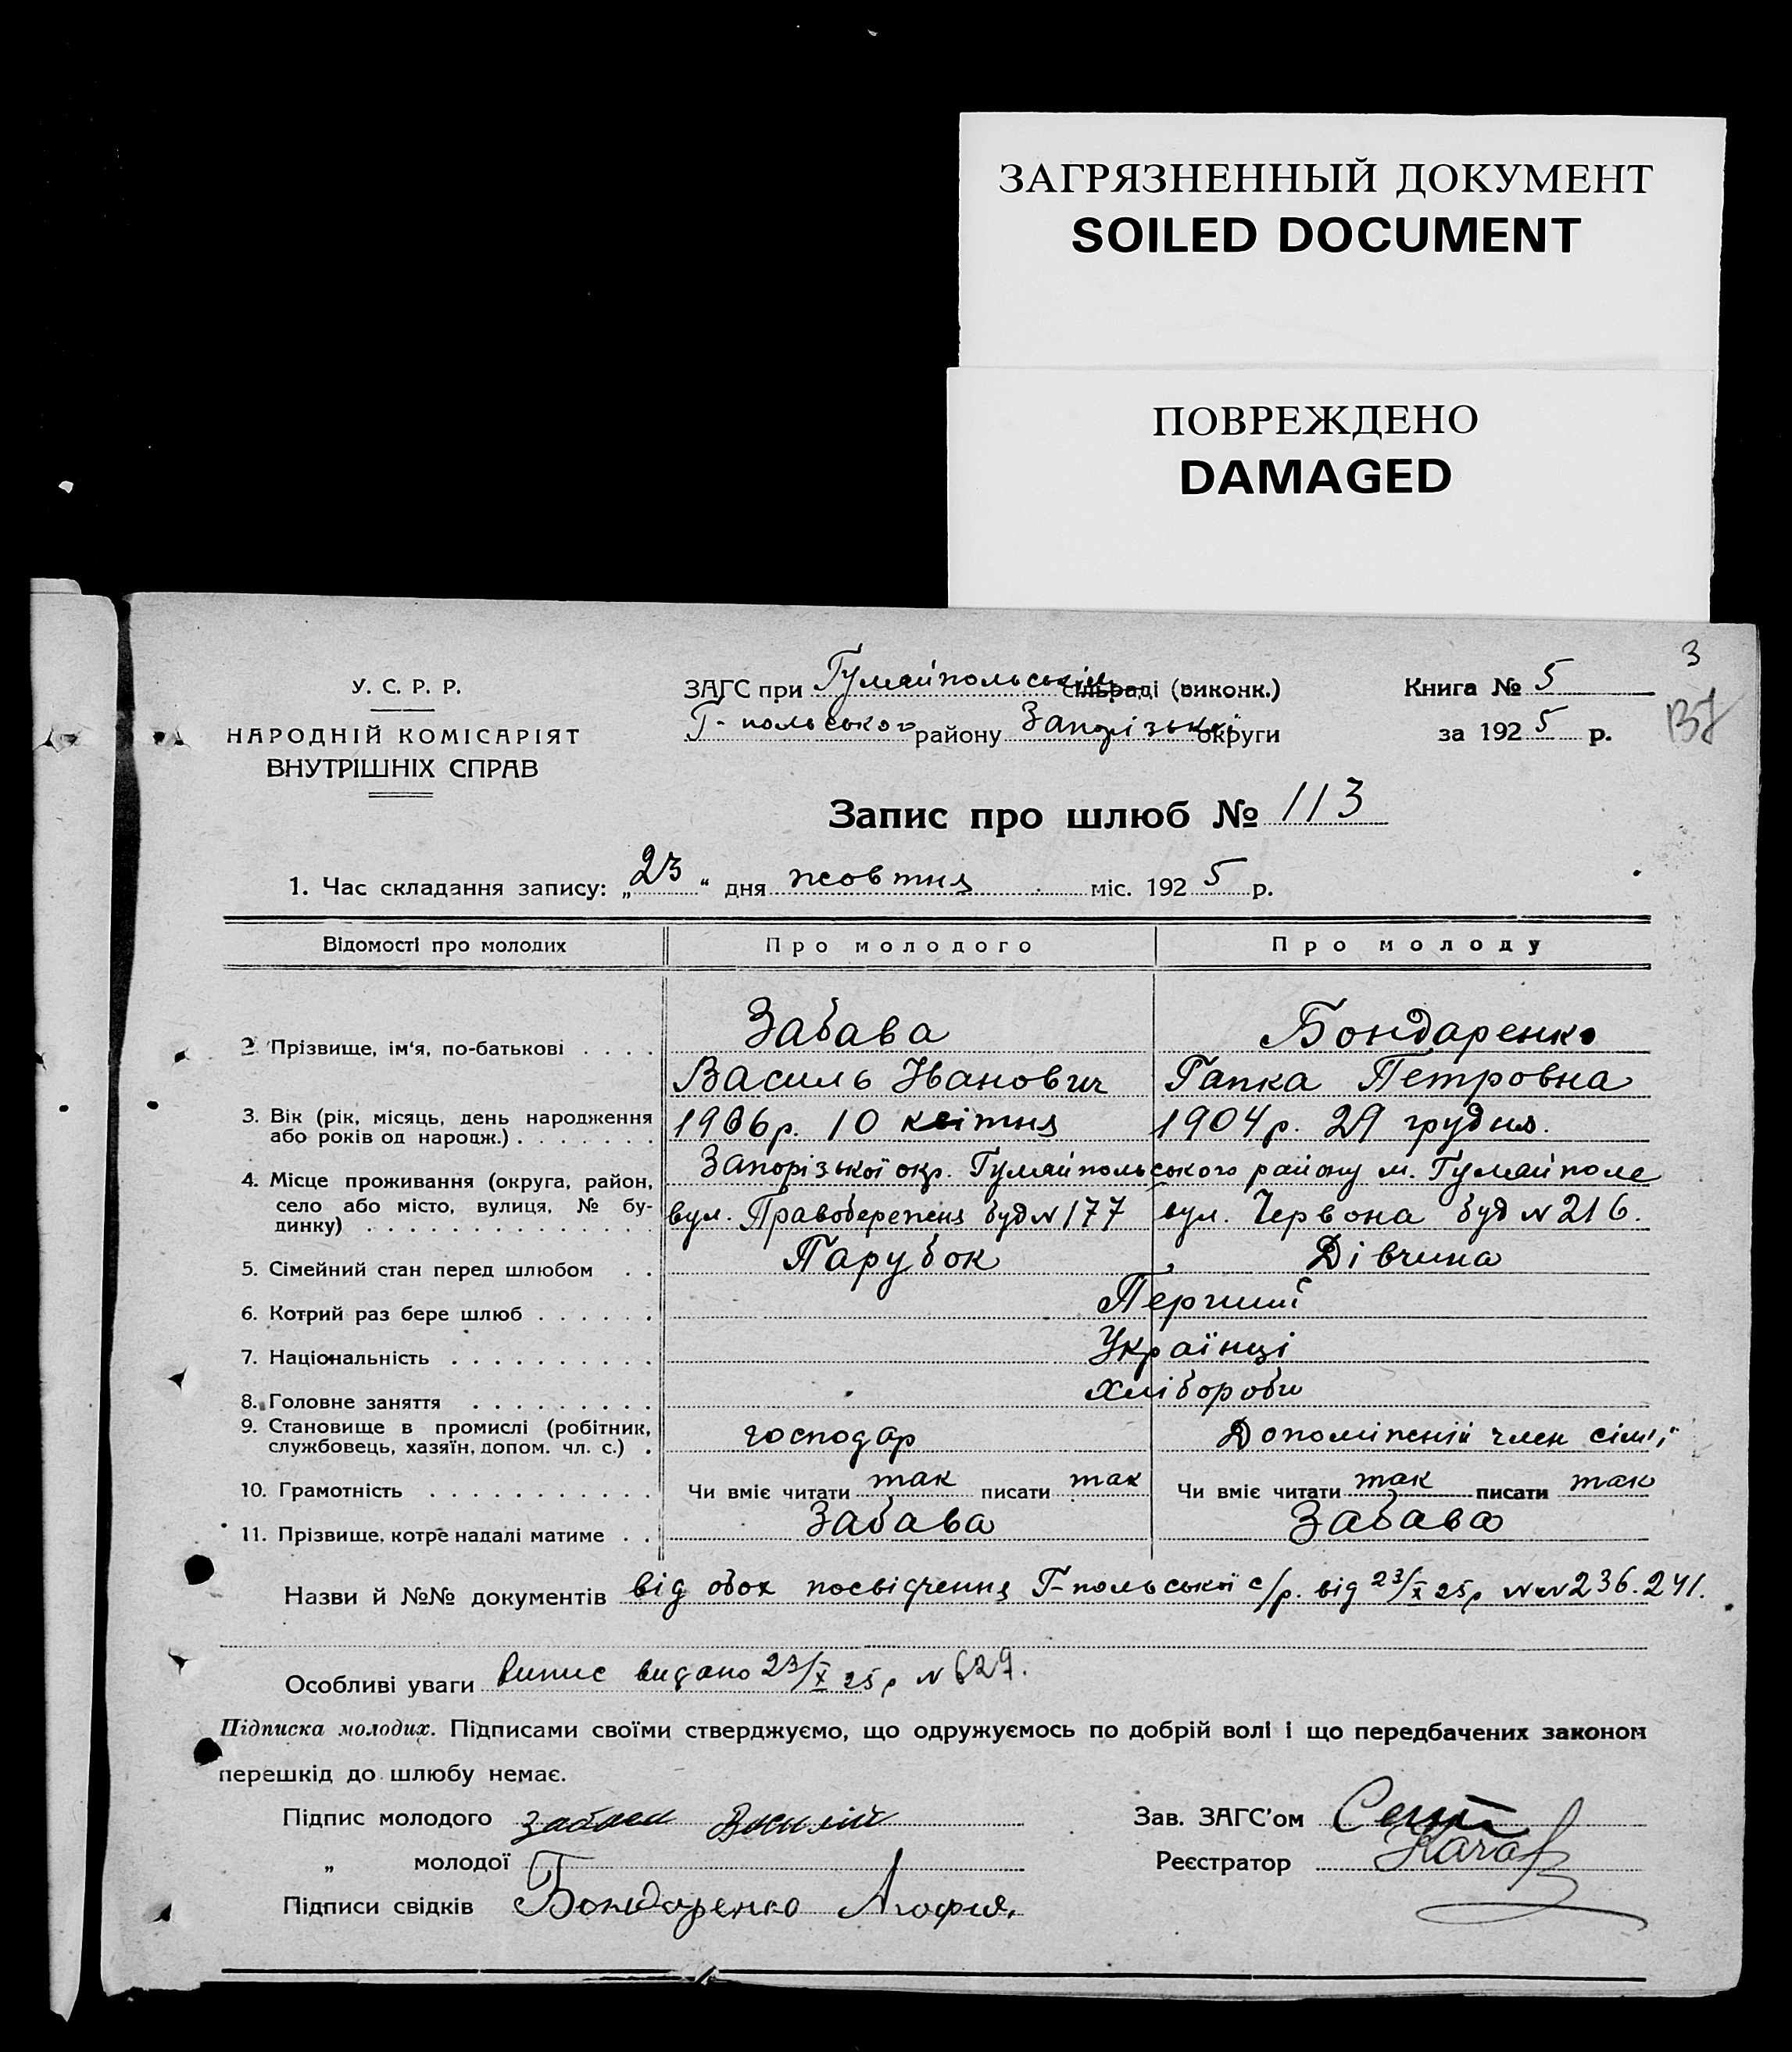 ЗАГРЯЗНЕННЫЙ ДОКУМЕНТ
SOILED DOCUMENT
ПОВРЕЖДЕНО
DAMAGED
3
У. С. Р. Р.
НАРОДНІЙ КОМІСАРІЯТ
ВНУТРІШНІХ СПРАВ
ЗАГС при Гуляйпольськім сільраді (виконк.)
Г-польського району Запорізької округи
Книга № 5
за 1925 р.
Запис про шлюб № 113
1. Час складання запису: „23“ дня жовтня міс. 1925 р.
Відомості про молодих Про молодого Про молоду
2. Прізвище, ім‘я, по-батькові . . . . Забава Бондаренко
Василь Іванович Гапка Петровна
3. Вік (рік, місяць, день народження
або років од народж.) . . . . . . . 1906р. 10 квітня 1904р. 29 грудня.
4. Місце проживання (округа, район, Запорізької окр. Гуляйпольського району м. Гуляйполе
село або місто, вулиця, № бу-
динку) . . . . . . . . . . . . . вул. Правобережня буд № 177 вул. Червона буд № 216.
5. Сімейний стан перед шлюбом . . Парубок Дівчина
6. Котрий раз бере шлюб . . . . . . Перший
7. Національність . . . . . . . . . . Українці
8. Головне заняття . . . . . . . . . Хлібороби
9. Становище в промислі (робітник,
службовець, хазяїн, допом. чл. с.) . господар Допоміжній член сім'ї
10. Грамотність . . . . . . . . . . . Чи вміє читати так писати так Чи вміє читати так писати так
11. Прізвище, котре надалі матиме . . Забава Забава
Назви й №№ документів від обох посвідчення Г-польської с/р. від 23/X 25р №№ 236.241.
Особливі уваги Випис видано 23/X 25р № 629.
Підписка молодих. Підписами своїми стверджуємо, що одружуємось по добрій волі і що передбачених законом
перешкід до шлюбу немає.
Підпис молодого Забава Василій
„ молодої
Підписи свідків Бондаренко Агофия
Зав. ЗАГС’ом
Реєстратор